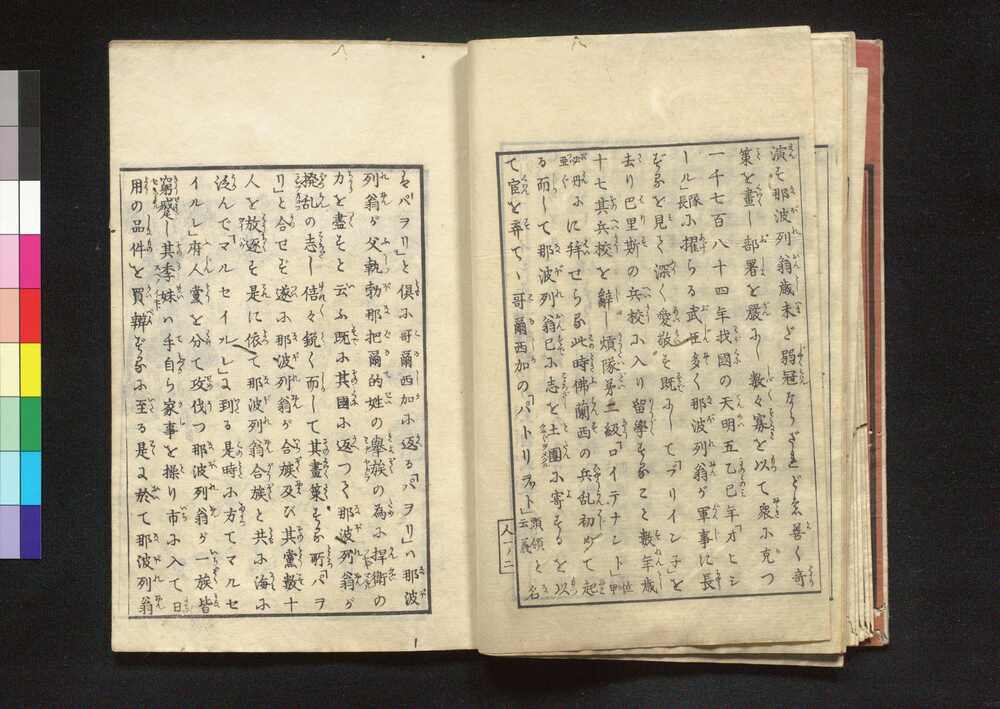 演を那波列翁歳未ど弱冠ならざれどゑ善く奇
策を畫し部署を嚴にし數々寡を以て衆に克つ
一千七百八十四年我國の天明五乙巳年「オヒシ
ール」隊長に擢らる武臣多く那波列翁が軍事に長
ずるを見て深く愛敬を既にして「ブリインチ」を
去り巴里斯の兵校に入り留學すること數年歳
十七其兵校を辭し煩隊第二級「ロイテナント」位甲
必丹に亜ぐに拜せらる此時佛蘭西の兵乱初めて起
る而して那波列翁已に志を土團に寄するを以
て官を弃て、哥爾西加の「パトリヲット」頭領と名
云義
人一ノ二
る「パヲリ」と倶に哥爾西加に返る「パヲリ」ハ那波
列翁が父執勃那把爾的姓の擧族の為に捍衛の
力を盡そと云ふ既に其國に返つて那波列翁が
撥乱の志し倍々鋭くして其畫策する所「パヲ
リ」と合せず遂に那波列翁が合族及び其黨數十
人を放逐す是に依て那波列翁合族と共に海に
泛んで「マルセイルレ」に到る是時に方てマルセ
イルレ」府人黨を分て攻伐つ那波列翁が一族皆
窮蹙し其季妹ハ手自ら家事を操り市に入て日
用の品件を買辨ずるに至る是に於て那波列翁